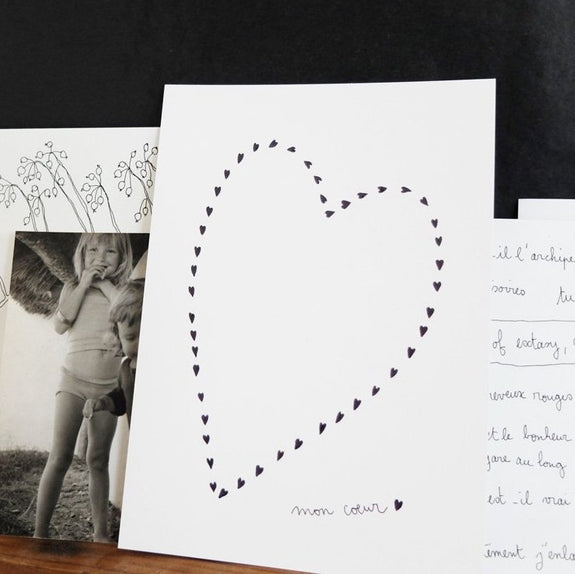 mon cœur
il l'archipe
soires tu
of extasy,
heveux rouges
et le bonheur
gare au long
est-il vrai
ément j'enla